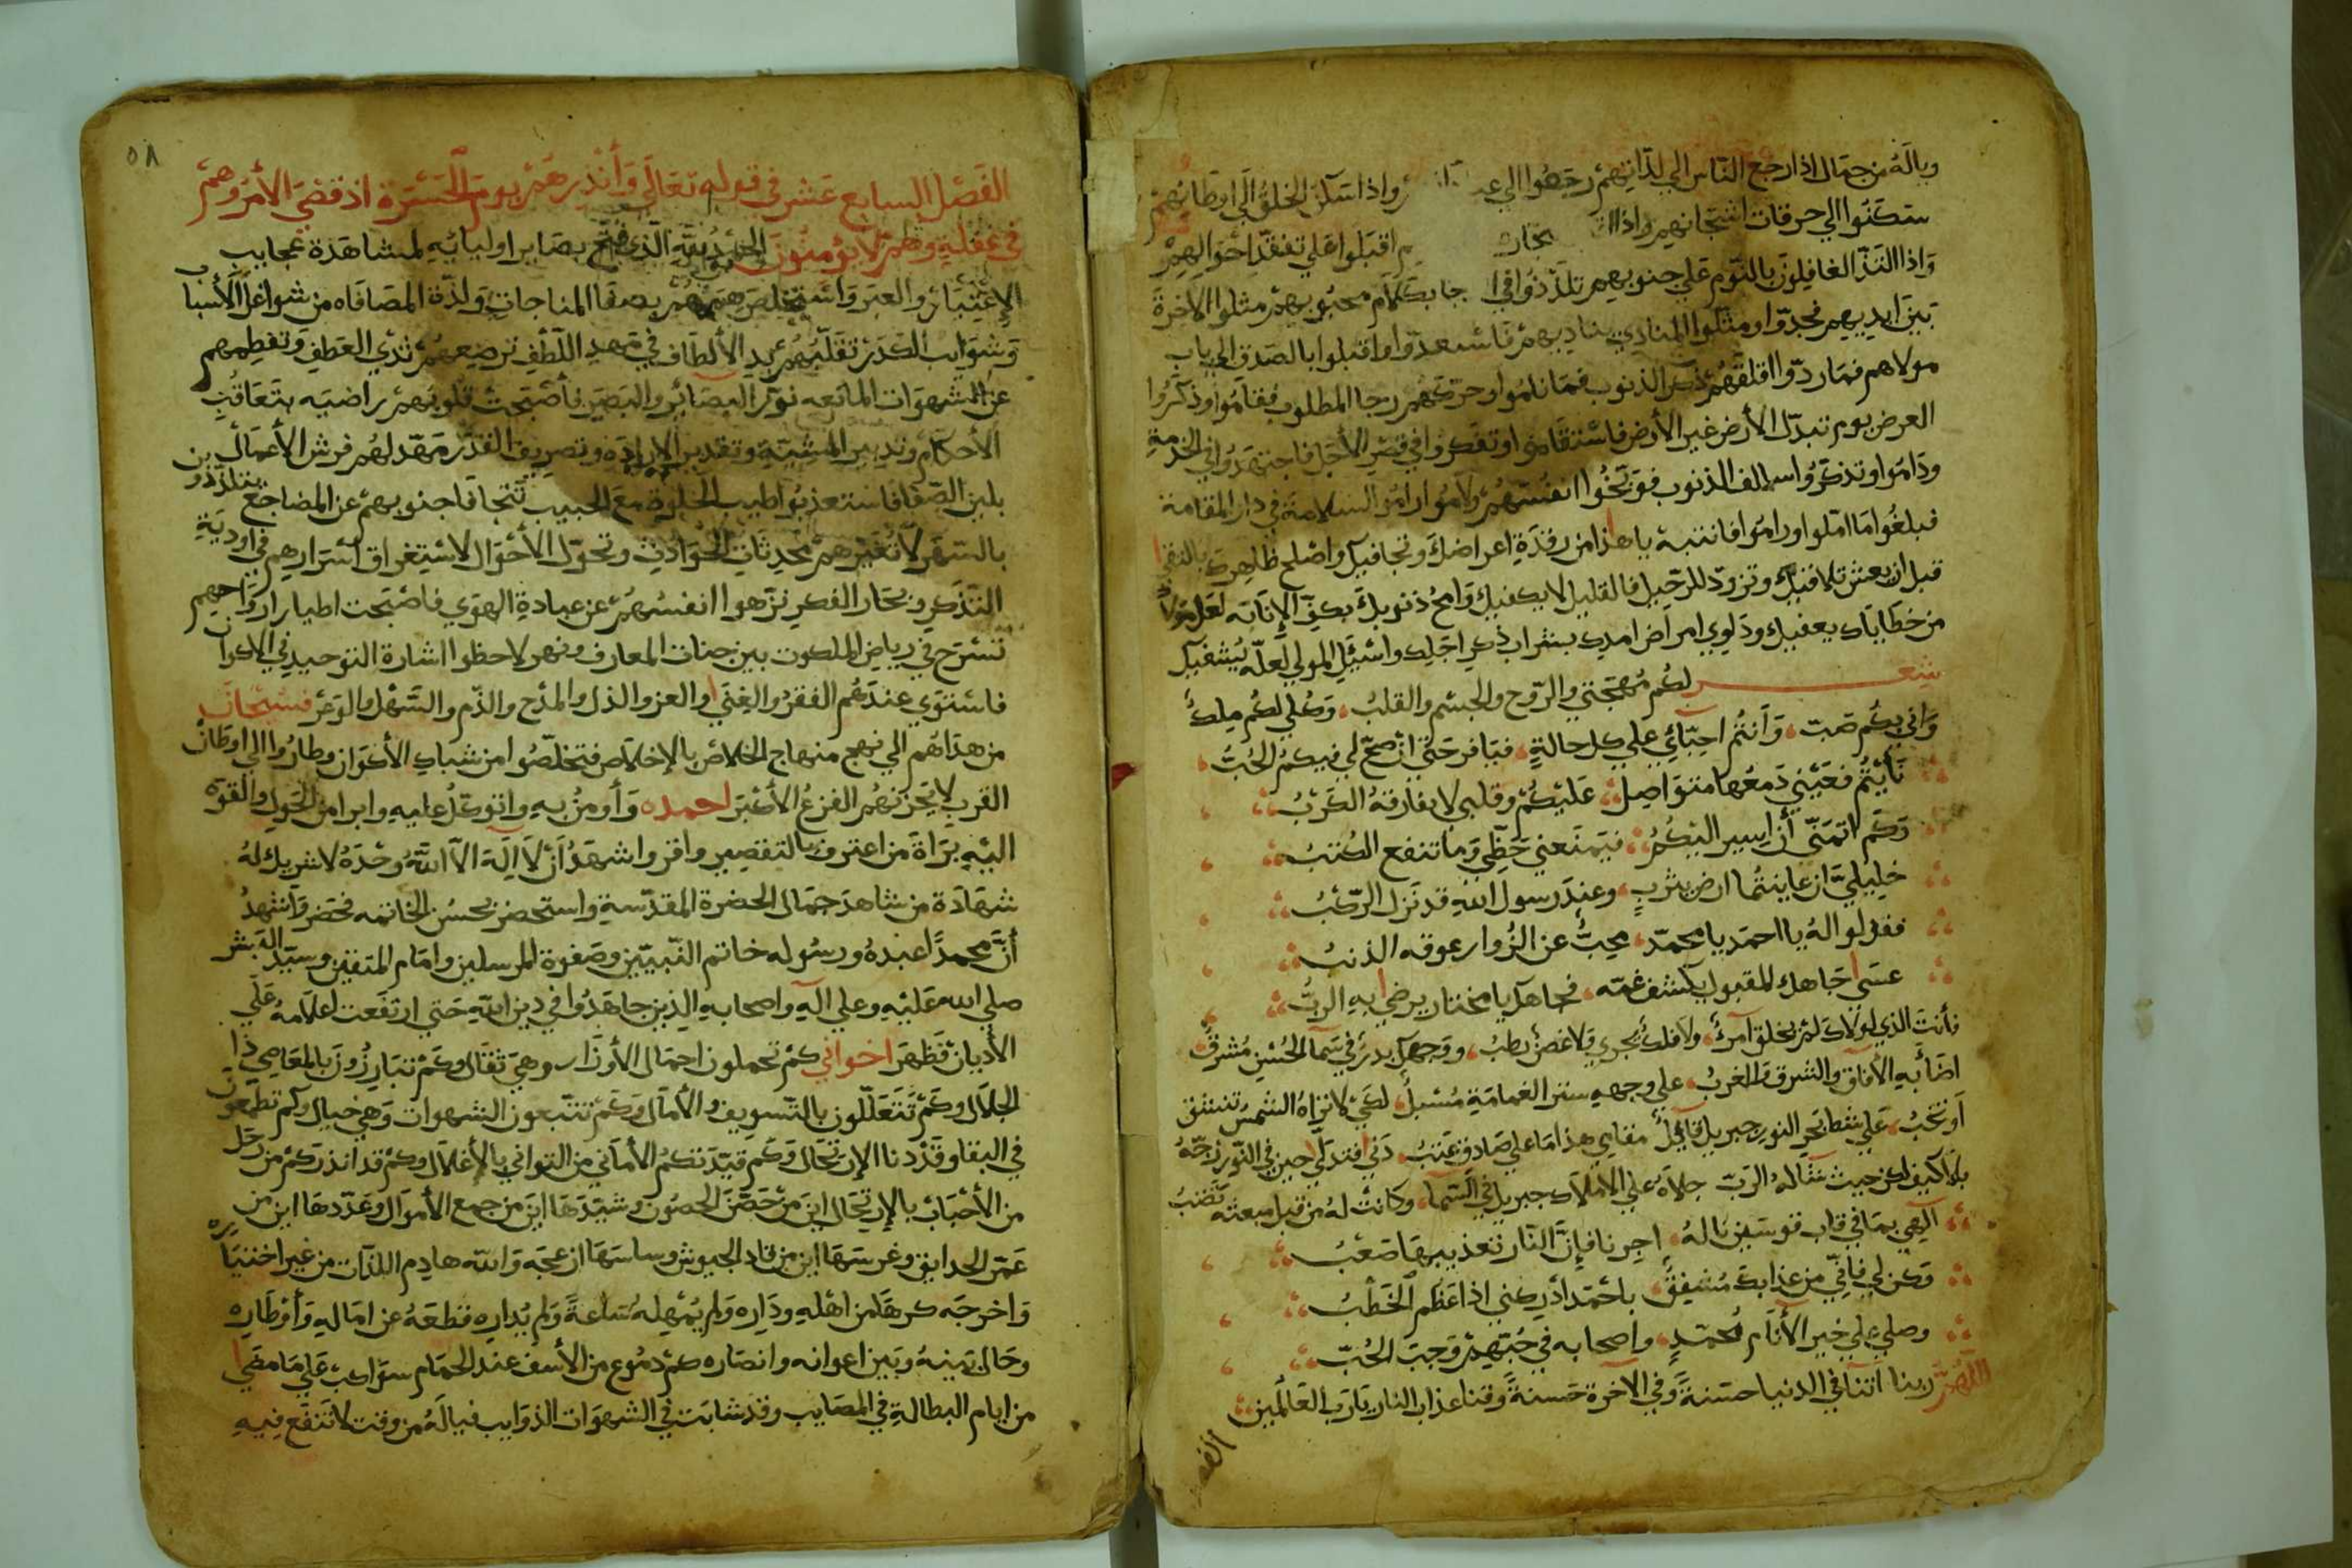 وياله من جمال اذا رجع الناس الي لذاتهم رجعوا الي واذا سكن الخلق الي اوطانهم
سكنوا الي حرقات اشجانهم واذا تجار اقبلوا علي تفقد احوالهم
واذا التذ الغافلون بالنوم علي جنوبهم تلذذوا في بكلام محبوبهم مثلوا الاخرة
بين ايديهم فجدوا ومثلوا المنادي يناديهم فاستعدوا واقبلوا بالصدق الي باب
مولاهم فما ردوا اقلقهم ذكر الذنوب فما ناموا وحركهم رجا المطلوب فقاموا وذكروا
العرض يوم تبدل الأرض غير الأرض فاستقاموا وتفكروا في قصر الأجل فاجتهدوا في الخدمة
وداموا وتذكروا سالف الذنوب فوبخوا انفسهم ولاموا وراموا السلامة في دار المقامة
فبلغوا ما املوا وراموا فانتبه يا هذا من رقدة اعراضك وتجافيك واصلح ظاهرك بالتقي
قبل ان يعثر تلافيك وتزود للرحيل فالقليل لا يكفيك وامح ذنوبك بكف الإنابه لعل مولاك
من خطاياك يعفيك وداوي امراض املك بشراب ذكر اجلك واسئل المولي لعله يشفيك
شعر لكم مهجتي والروح والجسم والقلب، وكلي لكم ملك
واني بكم صب، وأنتم احبائي علي كل حالة، فيا فرحتي ان صح لي فيكم الحب
نأيتم فعيني دمعها متواصل، عليكم وقلبي لا يفارقه الكرب
وكم اتمني أن اسير اليكم، فيمنعني حظي وما تنفع الكتب
خليلي ان عاينتما ارض يثرب، وعند رسول الله قد نزل الركب
فقولوا له يا احمد يا محمد، محب عن الزوار عوقه الذنب
عسي جاهك المقبول يكشف غمه، فجاهك يا مختار يرضي به الرب
فأنت الذي لولاك لم يخلق امرؤ، ولا فلك يجري ولا غصن رطب، ووجهك بدر في سما الحسن مشرق
اضأ به الأفاق والشرق والغرب، علي وجهه ستر الغمامة مسبل، لكي لا تراه الشمس تنشق
او تخب، علي شط بحر النور جبريل قائل مقامي هذا ما علي صادق عتب، دني فتدلي حين في النور زجه
بلا كيف لكن حيث شاء له الرب جلاه علي الاملاك جبريل في السما، وكانت له من قبل مبعثه تصب
الهي بما في قاب قوسين ناله، اجرنا فإن النار تعذيبها صعب
وكن لي فاني من عذابك مشفق، يا حمد أدركني اذا عظم الخطب
وصلي علي خير الأنام محمد، واصحابه في حبهم وجب الحب
اللهم ربنا اتنا في الدنيا حسنة وفي الاخرة حسنة وقنا عذاب النار يا رب العالمين
الفصل
٥٨
الفصل السابع عشر في قوله تعالي وأنذرهم يوم الحسرة اذ قضي الأمر وهم
في غفلة وهم لا يؤمنون الحمد لله الذي فتح بصاير اوليائه لمشاهدة عجايب
الإعتبار والعبر واستخلص هممهم بصفا المناجات ولذة المصافاه من شواغل الأسباب
وشوايب الكدر تقلبهم يد الألطاف في مهد اللطف ترضعهم ثدي العطف وتفطمهم
عن الشهوات المانعه نور البصائر والبصر فأصبحت قلوبهم راضيه بتعاقب
الأحكام وتدبير المشية وتقدير الإرادة وتصريف القدر مهد لهم فرش الأعمال
بلين الصفا فاستعذبوا طيب الخلوة مع الحبيب تتجافا جنوبهم عن المضاجع يتلذذون
بالسهر لا تغيرهم محدثات الحوادث وتحول الأحوال لاستغراق أسرارهم في اودية
التذكر وبحار الفكر نزهوا انفسهم عن عبادة الهوي فاصبحت اطيار ارواحهم
تسرح في رياض الملكوت بين جنات المعارف ونهر لاحظوا اشارة التوحيد في الاكوان
فاستوي عندهم الفقر والغني والعز والذل والمدح والذم والسهل والوعر فسبحان
من هداهم الي نهج منهاج الخلاص بالإخلاص فتخلصوا من شباك الأكوان وطاروا الي اوطان
القرب لا يحزنهم الفزع الأكبر احمده وأومن به واتوكل عليه وابرا من الحول والقوة
اليه براة من اعترف بالتقصير واقر واشهد أن لا اله الا الله وحده لا شريك له
شهادة من شاهد جمال الحضرة المقدسة واستحضر بحسن الخاتمه فحضر واشهد
أن محمدا عبده ورسوله خاتم النبيين وصفوة المرسلين وامام المتقين وسيد البشر
صلي الله عليه وعلي اله واصحابه الذين جاهدوا في دين الله حتي ارتفعت اعلامه علي
الأديان فظهر اخواني كم تحملون احمال الأوزار وهي ثقال وكم تبارزون بالمعاصي ذا
الجلال وكم تتعللون بالتسويف والأمال وكم تتبعون الشهوات وهي خيال وكم تطمعون
في البقا وقد دنا الإرتحال وكم قيدتكم الأماني من التواني بالأغلال وكم قد انذركم من رحل
من الأحباب بالإرتحال اين من حصن الحصون وشيدها اين من جمع الأموال وعددها اين من
عمر الحدايق وغرسها اين من قاد الجيوش وساسها ازعجه والله هادم اللذات من غير اختياره
واخرجه كرها من اهله وداره ولم يمهله ساعة ولم يداره فقطعه عن اماله وأوطاره
وحال بينه وبين اعوانه وانصاره كم دموع من الأسف عند الحمام سواكب علي ما مضي
من ايام البطالة في المصايب وقد شابت في الشهوات الذوايب فياله من وقت لا تنفع فيه